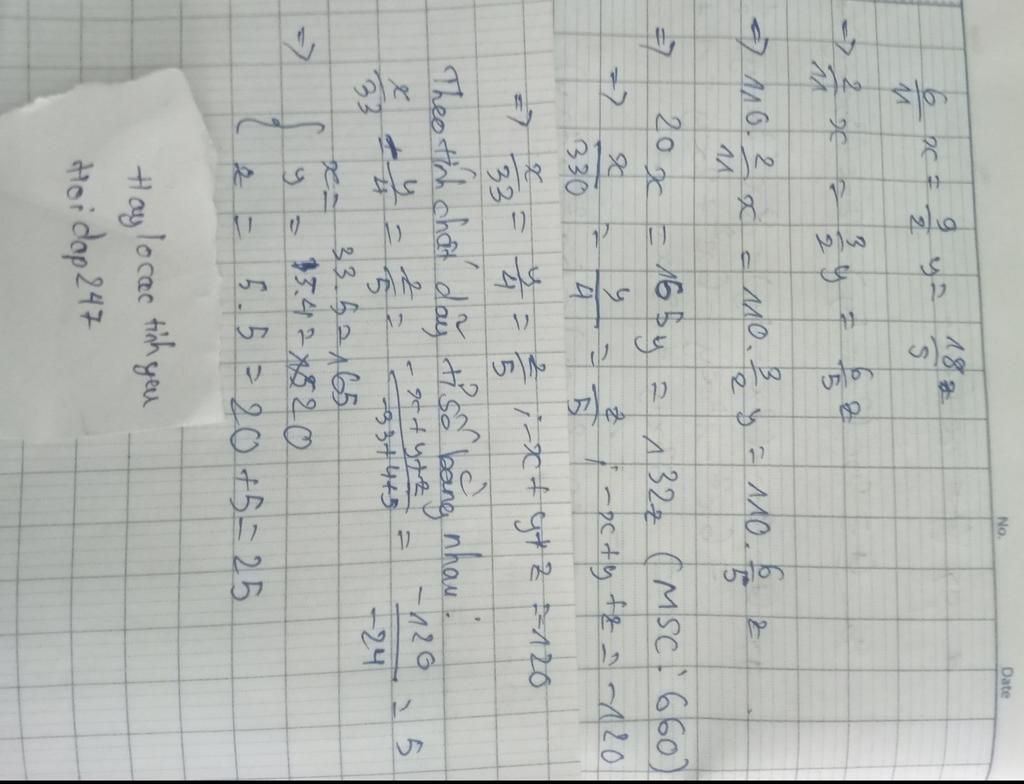 No.
Date
6/11 x = 9/2 y = 18/5 z
=> 2/11 x = 3/2 y = 6/5 z
=> 110. 2/11 x = 110. 3/2 y = 110. 6/5 z
=> 20x = 165y = 132z (MSC: 660)
=> x/330 = y/4 = z/5 ; -x+y+z = -120
=> x/33 = y/4 = z/5 ; -x + y + z = -120
Theo tính chất dãy tỉ số bằng nhau:
x/33 = y/4 = z/5 = -x+y+z/-33+4+5 = -120/-24 = 5
=> { x = 33.5 = 165
{ y = 5.4 = 20
{ z = 5.5 = 20+5 = 25
Hay locac tinh yeu
Hoidap247